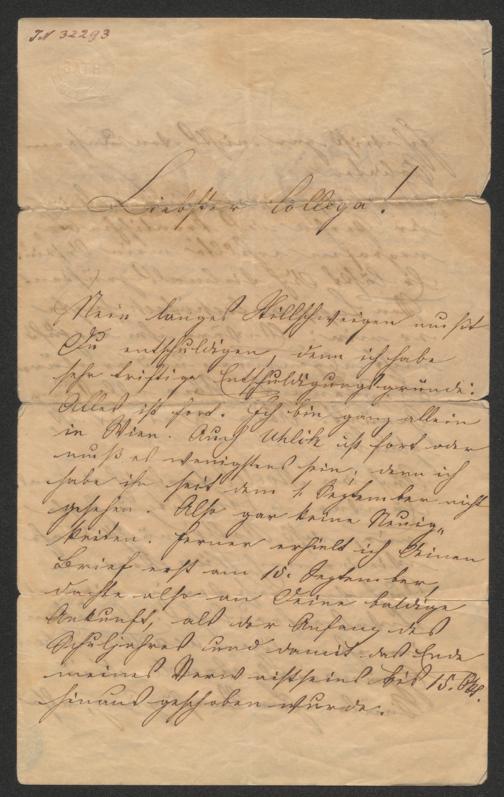 IN 32293
Liebster Collega!
Mein langes Stillschweigen mußt
Du entschuldigen, denn ich habe
sehr triftige Entschuldigungsgründe:
Alles ist fort. Ich bin ganz allein
in Wien. Auch Uhlik ist fort oder
muß es wenigstens sein, denn ich
habe ihn seit dem 1. September nicht
gesehen. Also gar keine Neuig-
keiten. Ferner erhielt ich Deinen
Brief erst am 15. September,
dachte also an Deine baldige
Ankunft, als der Anfang des
Schuljahres und damit das Ende
meines Verwaistseins bis 15. Okt.
hinaus geschoben wurde.